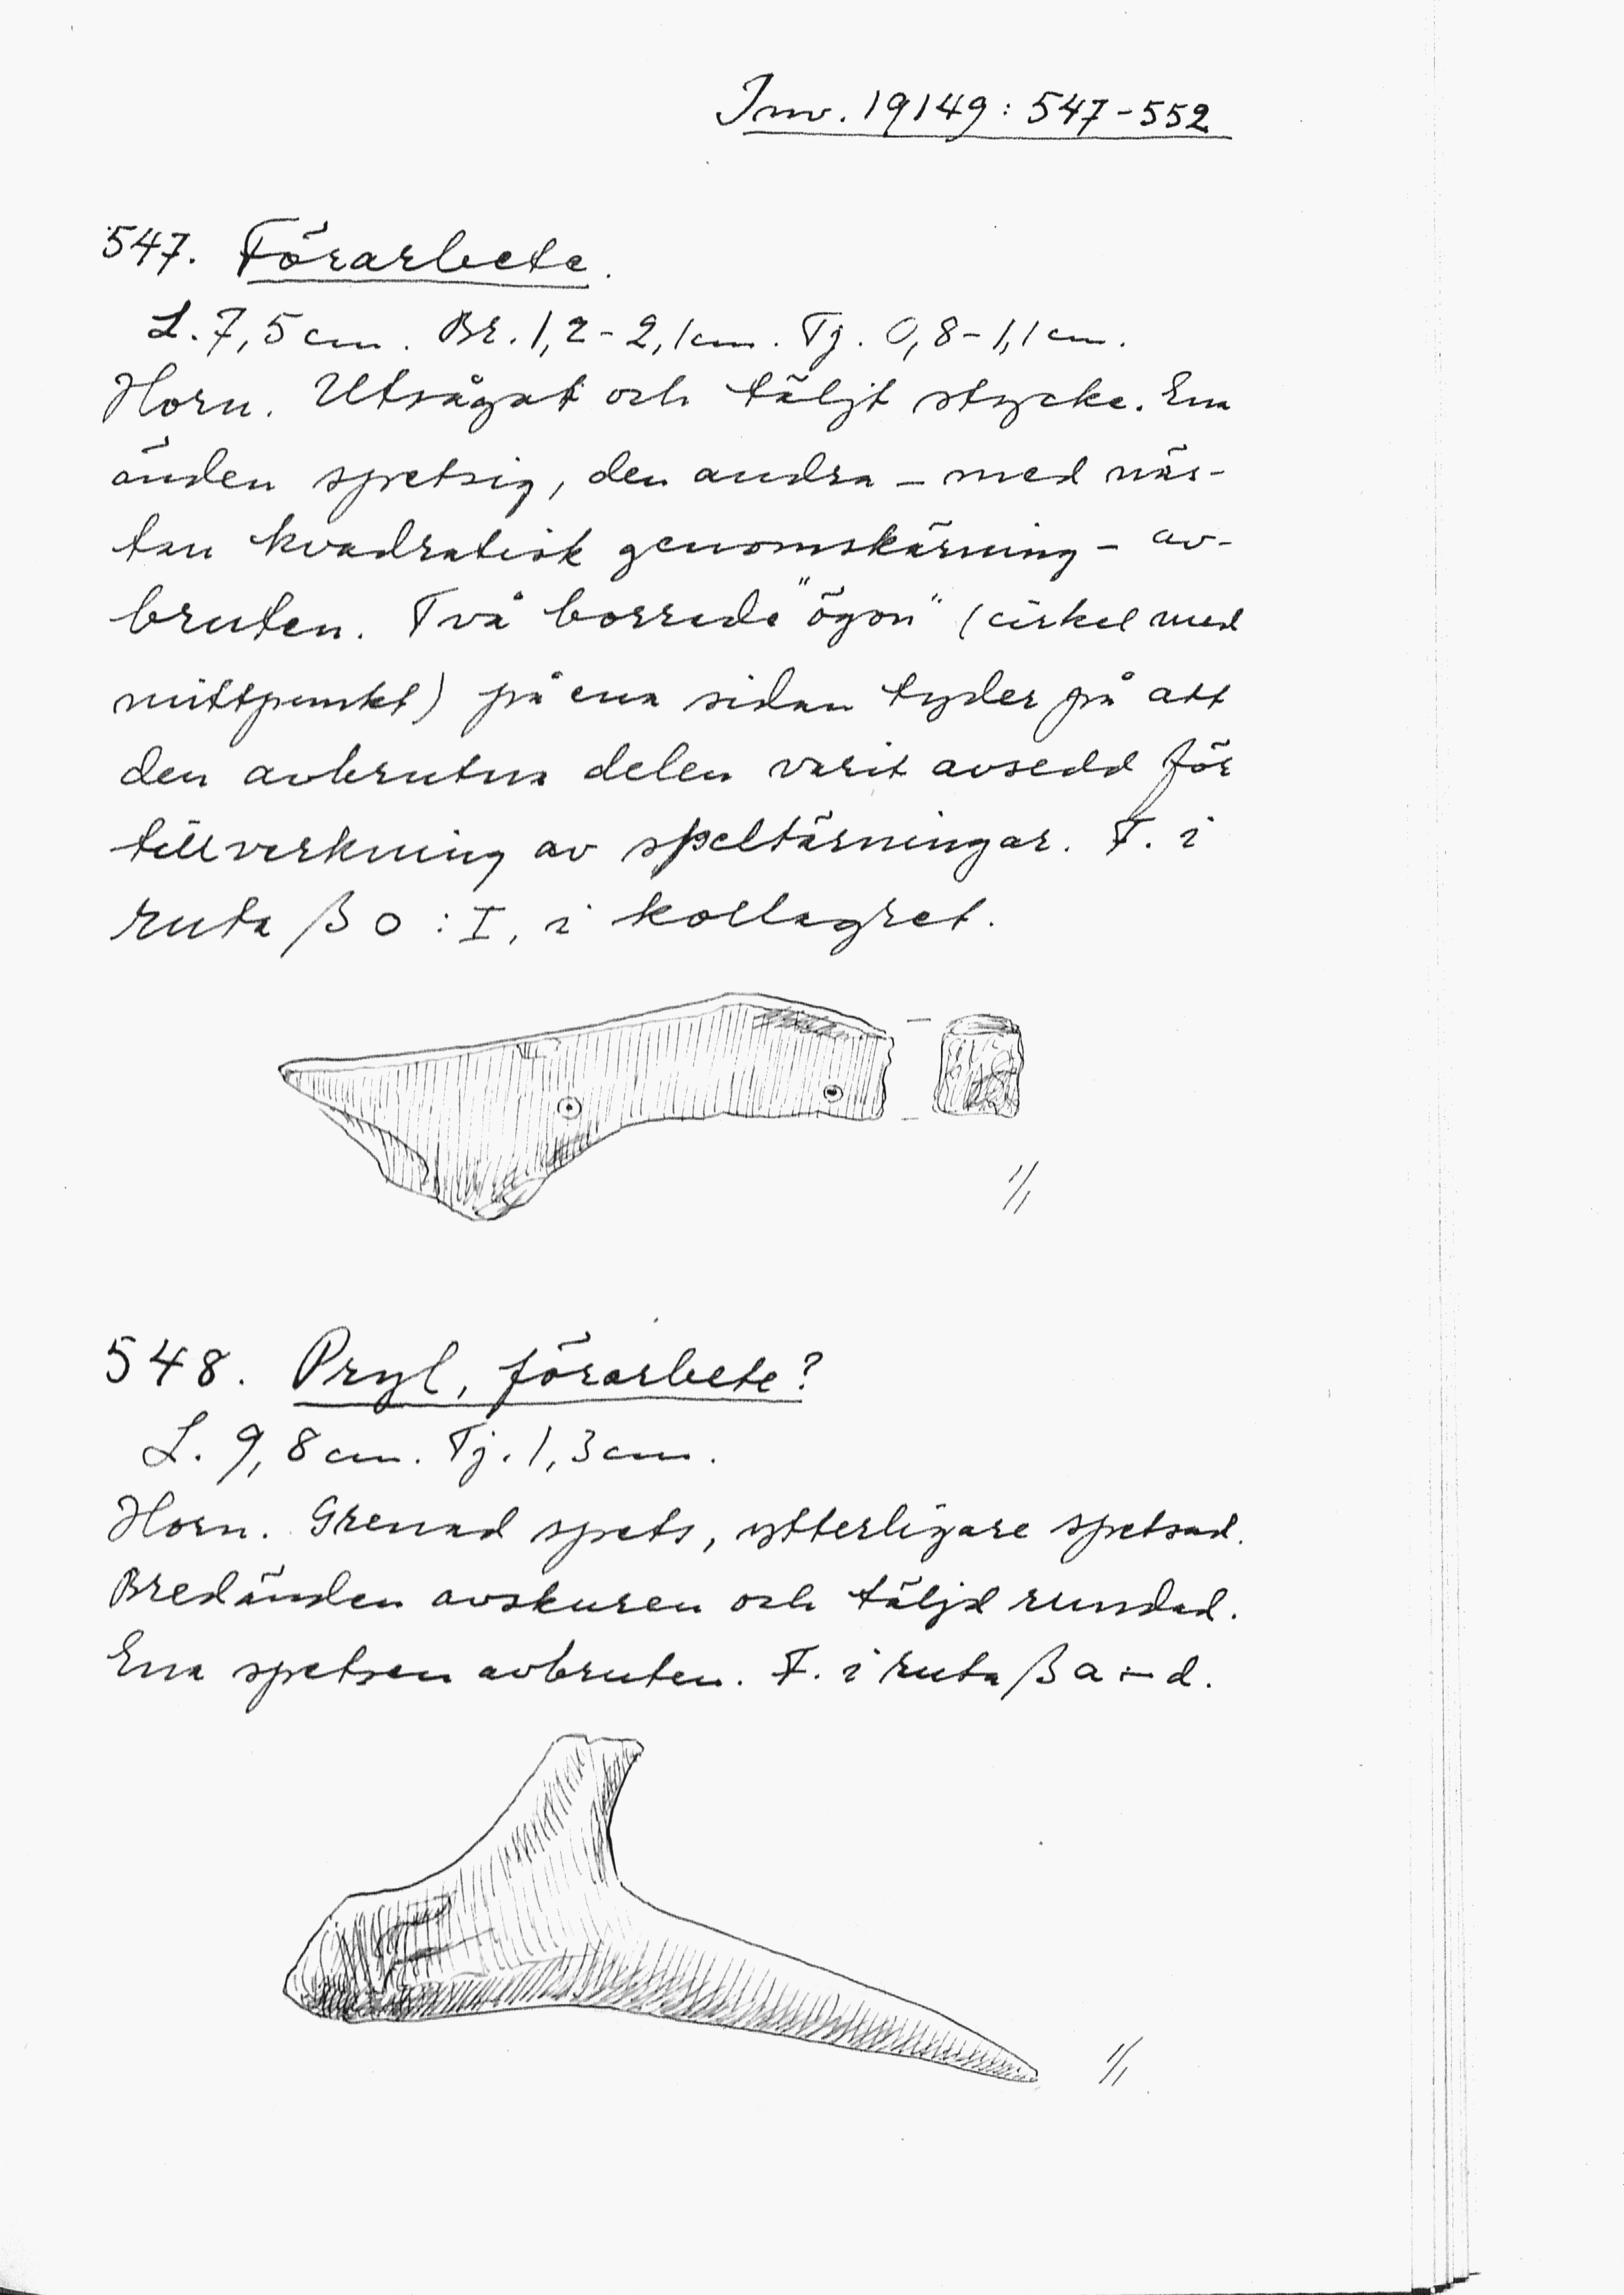 Inv. 19149: 547-552
547. Förarbete.
L. 7,5 cm. Br. 1,2-2,1 cm. Tj. 0,8-1,1 cm.
Horn. Utsågat och täljt stycke. Ena
änden spetsig, den andra - med näs-
tan kvadratisk genomskärning - av-
bruten. Två borrade "ögon" (cirkel med
mittpunkt) på ena sidan tyder på att
den avbrutna delen varit avsedd för
tillverkning av speltärningar. F. i
ruta β o : I, i kollagret.
1/1
548. Pryl, förarbete?
L. 9,8 cm. Tj. 1,3 cm.
Horn. Grenad spets, ytterligare spetsad.
Bredänden avskuren och täljd rundad.
Ena spetsen avbruten. F. i ruta β a-d.
1/1